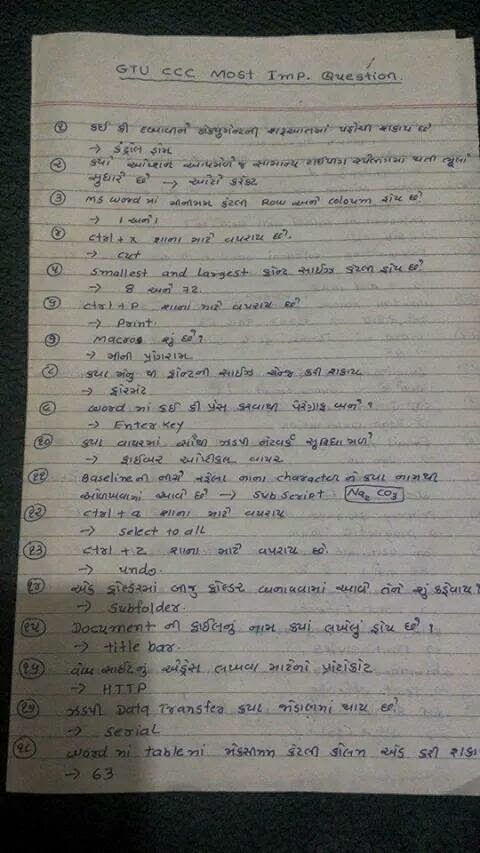 GTU CCC Most Imp. Question.
૧ કઈ કી દબાવીને ડોક્યુમેન્ટની શરૂઆતમાં પહોંચી શકાય છે
→ કંટ્રોલ હોમ
૨ કયો ઓપ્શન આપમેળે જ સામાન્ય ટાઈપીંગ સ્પેલિંગમાં થતી ભૂલો
સુધારે છે → ઓટો કરેક્ટ
૩ MS word માં મીનીમમ કેટલી Row અને coloum હોય છે
→ 1 અને 1
૪ ctrl + x શાના માટે વપરાય છે.
→ cut
૫ smallest and largest ફોન્ટ સાઈઝ કેટલી હોય છે
→ 8 અને 72.
૬ ctrl + P શાના માટે વપરાય છે
→ Print.
૭ Macros શું છે?
→ મીની પ્રોગ્રામ
૮ કયા મેનુ થી ફોન્ટની સાઈઝ ચેન્જ કરી શકાય
→ ફોરમેટ
૯ word માં કઈ કી પ્રેસ કરવાથી પેરેગ્રાફ બને ?
→ Enter key
૧૦ કયા વાયરમાં સૌથી ઝડપી નેટવર્ક સુવિધા મળે
→ ફાઈબર ઓપ્ટીકલ વાયર
૧૧ Baselineની નીચે રહેલા નાના character ને કયા નામથી
ઓળખવામાં આવે છે → Subscript Na2 CO3
૧૨ ctrl + a શાના માટે વપરાય
→ select to all
૧૩ ctrl + z શાના માટે વપરાય છે.
→ undo.
૧૪ એક ફોલ્ડરમાં બીજુ ફોલ્ડર બનાવવામાં આવે તેને શું કહેવાય?
→ Subfolder.
૧૫ Document ની ફાઈલનું નામ કયાં લખેલું હોય છે ?
→ title bar.
૧૬ વેબ સાઈટનું એડ્રેસ લખવા માટેનો પ્રોટોકોલ
→ HTTP
૧૭ ઝડપી Data Transfer કયા જોડાણમાં થાય છે.
→ serial
૧૮ word માં table માં મેક્સીમમ કેટલી કોલમ એડ કરી શકા
→ 63